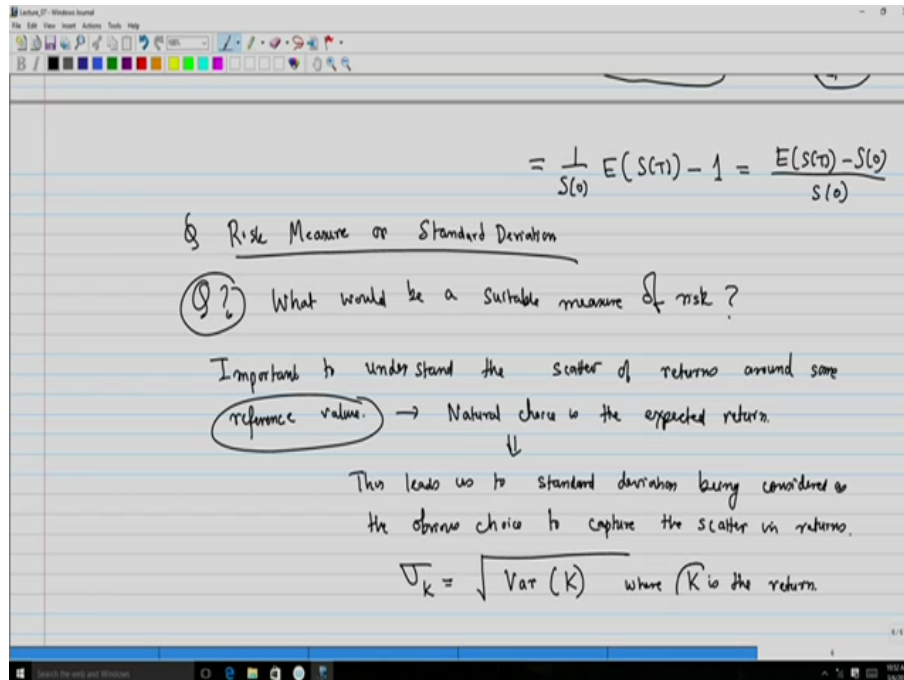 Lecture_07 - Windows Journal
File Edit View Insert Actions Tools Help
B I
= 1/S(0) E(S(T)) - 1 = E(S(T)) - S(0) / S(0)
§ Risk Measure or Standard Deviation
Q? What would be a suitable measure of risk?
Important to understand the scatter of returns around some
reference value. → Natural choice is the expected return.
⇓
This leads us to standard deviation being considered as
the obvious choice to capture the scatter in returns.
σ_K = √Var (K) where K is the return.
6/6
6
Search the web and Windows